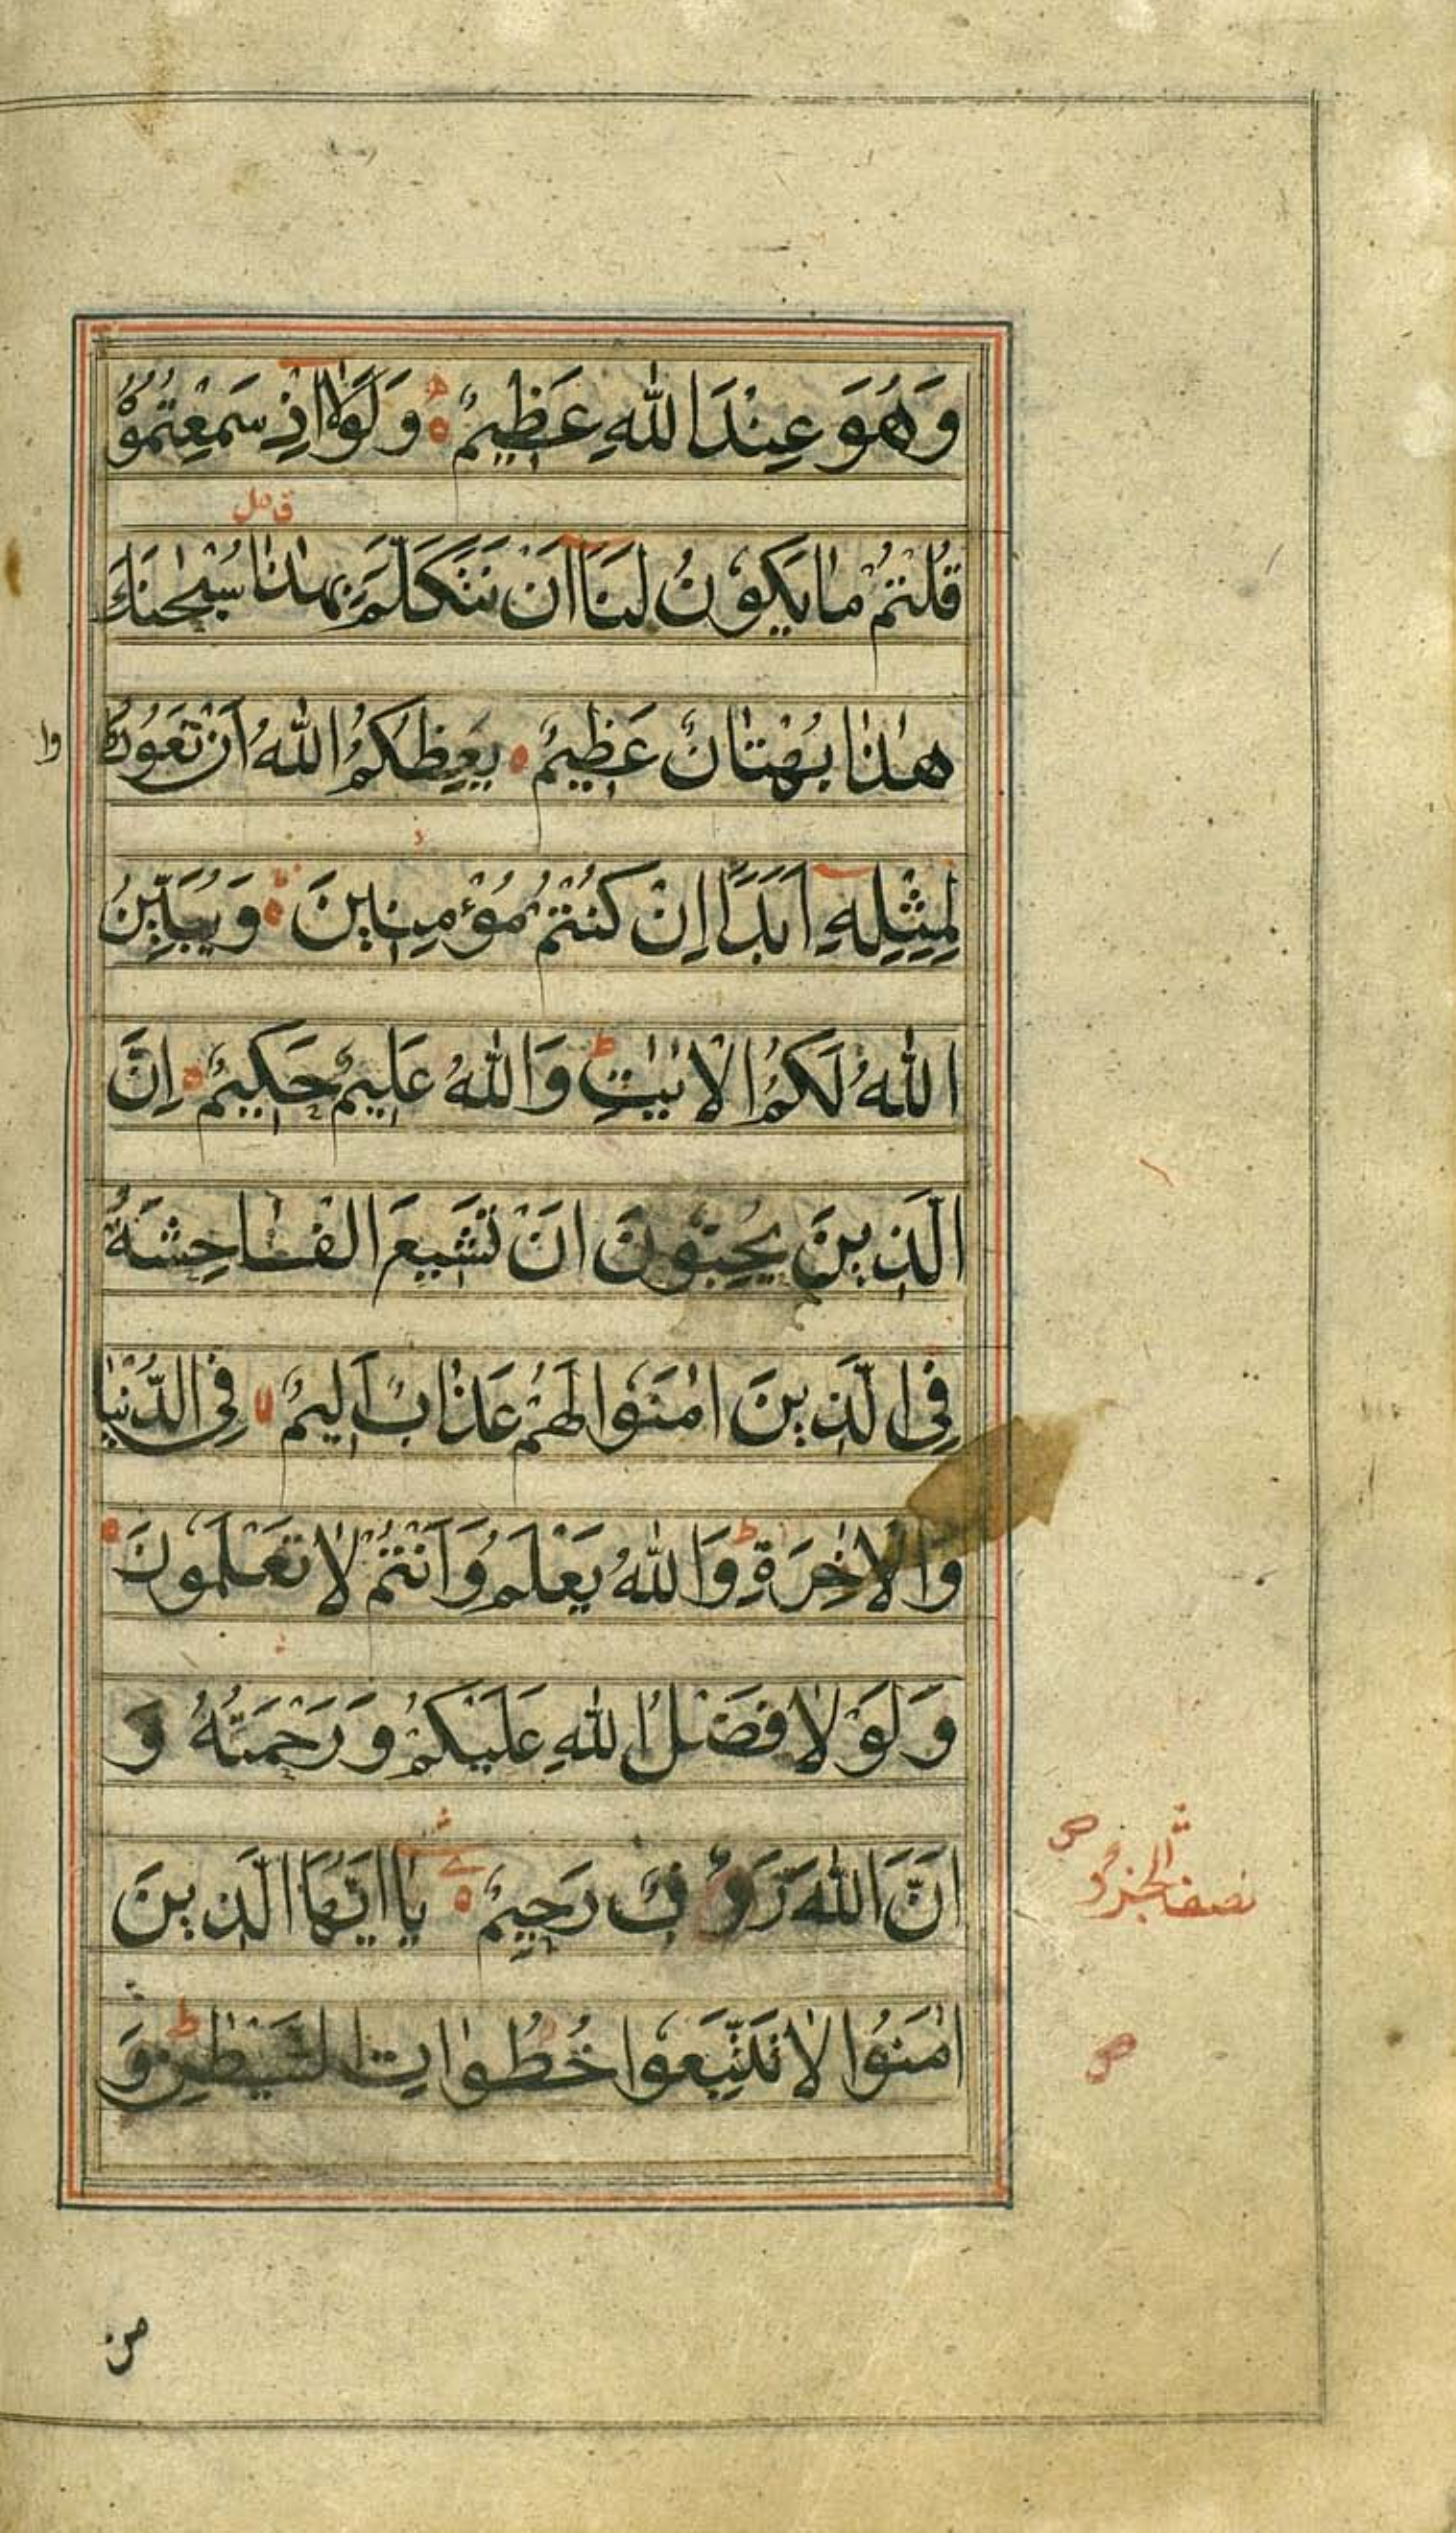 وَهُوَ عِنْدَ اللهِ عَظِيمٌ ه وَلَوْلَا اِذْ سَمِعْتُمُوْهُ
قُلْتُمْ مَا يَكُوْنُ لَنَا اَنْ نَتَكَلَّمَ بِهٰذَا سُبْحٰنَكَ
هٰذَا بُهْتَانٌ عَظِيْمٌ ه يَعِظُكُمُ اللهُ اَنْ تَعُوْدُ
وا
لِمِثْلِهِ اَبَدًا اِنْ كُنْتُمْ مُؤْمِنِيْنَ ه وَيُبَيِّنُ
اللهُ لَكُمُ الْاٰيٰتِ ط وَاللهُ عَلِيْمٌ حَكِيْمٌ ه اِنَّ
الَّذِيْنَ يُحِبُّوْنَ اَنْ تَشِيْعَ الْفَاحِشَةُ
فِي الَّذِيْنَ اٰمَنُوْا لَهُمْ عَذَابٌ اَلِيْمٌ لا فِي الدُّنْيَا
وَالْاٰخِرَةِ ط وَاللهُ يَعْلَمُ وَاَنْتُمْ لَا تَعْلَمُوْنَ ه
وَلَوْلَا فَضْلُ اللهِ عَلَيْكُمْ وَرَحْمَتُهُ وَ
اَنَّ اللهَ رَؤُفٌ رَحِيْمٌ ه يَا اَيُّهَا الَّذِيْنَ
نصف الجزؤ
اٰمَنُوْا لَا تَتَّبِعُوْا خُطُوَاتِ الشَّيْطٰنِ ط وَ
من